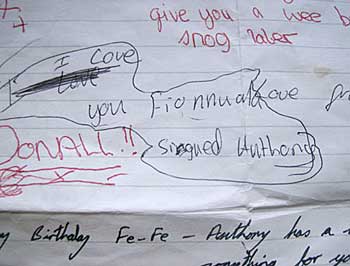 give you a wee b
snog later
I Love
Love
you Fionnuala Love fr
DONALL!! Snogued Authony
y Birthday Fe-Fe - Authony has a
something for yo